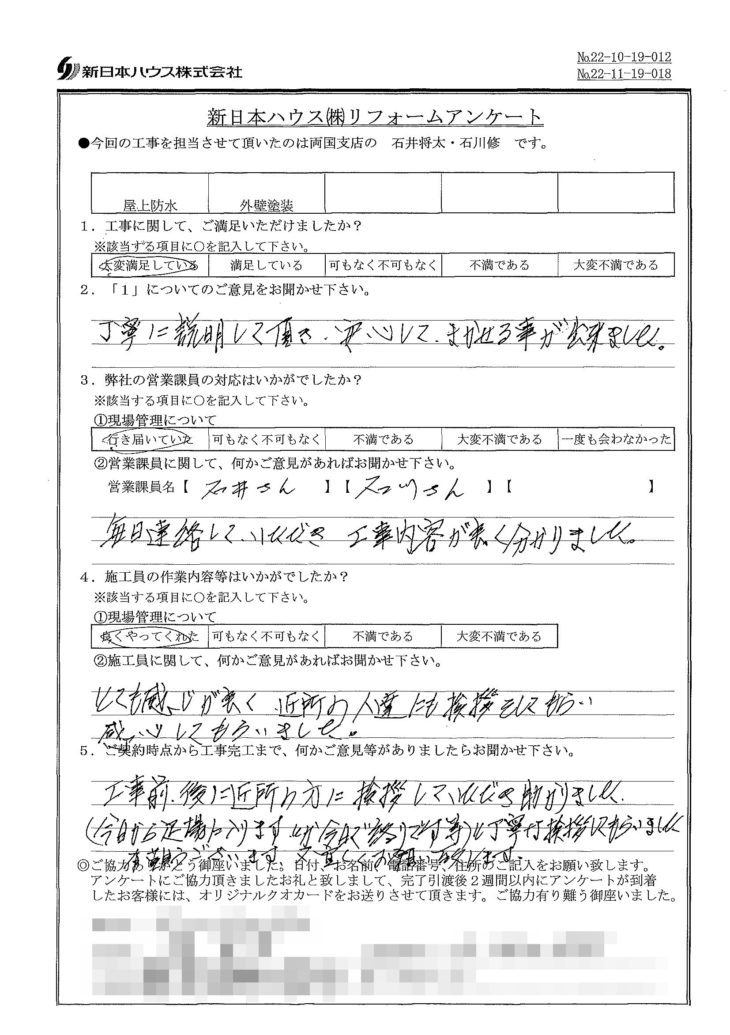 新日本ハウス株式会社
№22-10-19-012
№22-11-19-018
新日本ハウス㈱リフォームアンケート
●今回の工事を担当させて頂いたのは両国支店の 石井将太・石川修 です。
屋上防水 外壁塗装
1．工事に関して、ご満足いただけましたか？
※該当する項目に○を記入して下さい。
大変満足している 満足している 可もなく不可もなく 不満である 大変不満である
2．「1」についてのご意見をお聞かせ下さい。
丁寧に説明して頂き、安心して、まかせる事が出来ました。
3．弊社の営業課員の対応はいかがでしたか？
※該当する項目に○を記入して下さい。
①現場管理について
行き届いていた 可もなく不可もなく 不満である 大変不満である 一度も会わなかった
②営業課員に関して、何かご意見があればお聞かせ下さい。
営業課員名【 石井さん 】【 石川さん 】【 】
毎日連絡して、いただき 工事内容が良く分かりました。
4．施工員の作業内容等はいかがでしたか？
※該当する項目に○を記入して下さい。
①現場管理について
良くやってくれた 可もなく不可もなく 不満である 大変不満である
②施工員に関して、何かご意見があればお聞かせ下さい。
とても感じが良く 近所の人達にも挨拶をしてもらい
感心してもらいました。
5．ご契約時点から工事完工まで、何かご意見等がありましたらお聞かせ下さい。
工事前、後に近所の方に挨拶して、いただき助かりました。
(今日から足場に入ります とか今日で終りです等)と丁寧な挨拶してもらいました
◎ご協力ありがとう御座いました。日付、お名前、電話番号、住所のご記入をお願い致します。
アンケートにご協力頂きましたお礼と致しまして、完了引渡後2週間以内にアンケートが到着
したお客様には、オリジナルクオカードをお送りさせて頂きます。ご協力有り難う御座いました。